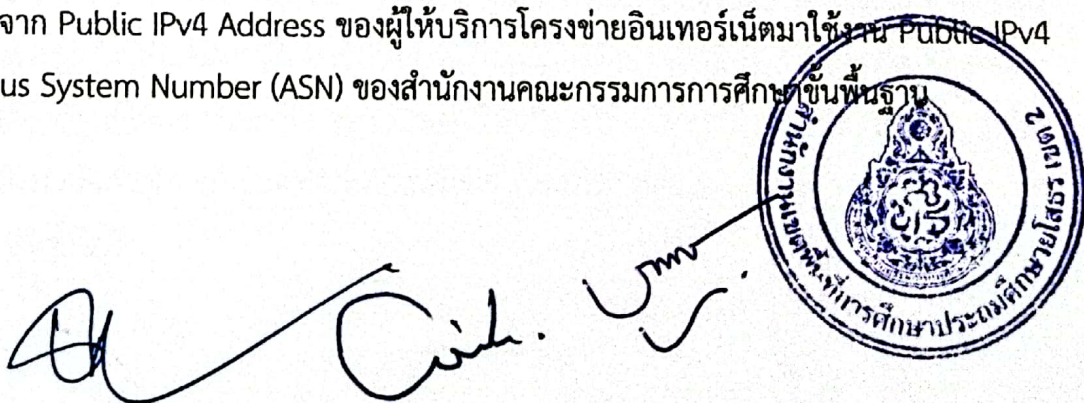 จาก Public IPv4 Address ของผู้ให้บริการโครงข่ายอินเทอร์เน็ตมาใช้งาน Public IPv4
us System Number (ASN) ของสำนักงานคณะกรรมการการศึกษาขั้นพื้นฐาน
สำนักงานเขตพื้นที่การศึกษาประถมศึกษายโสธร เขต 2